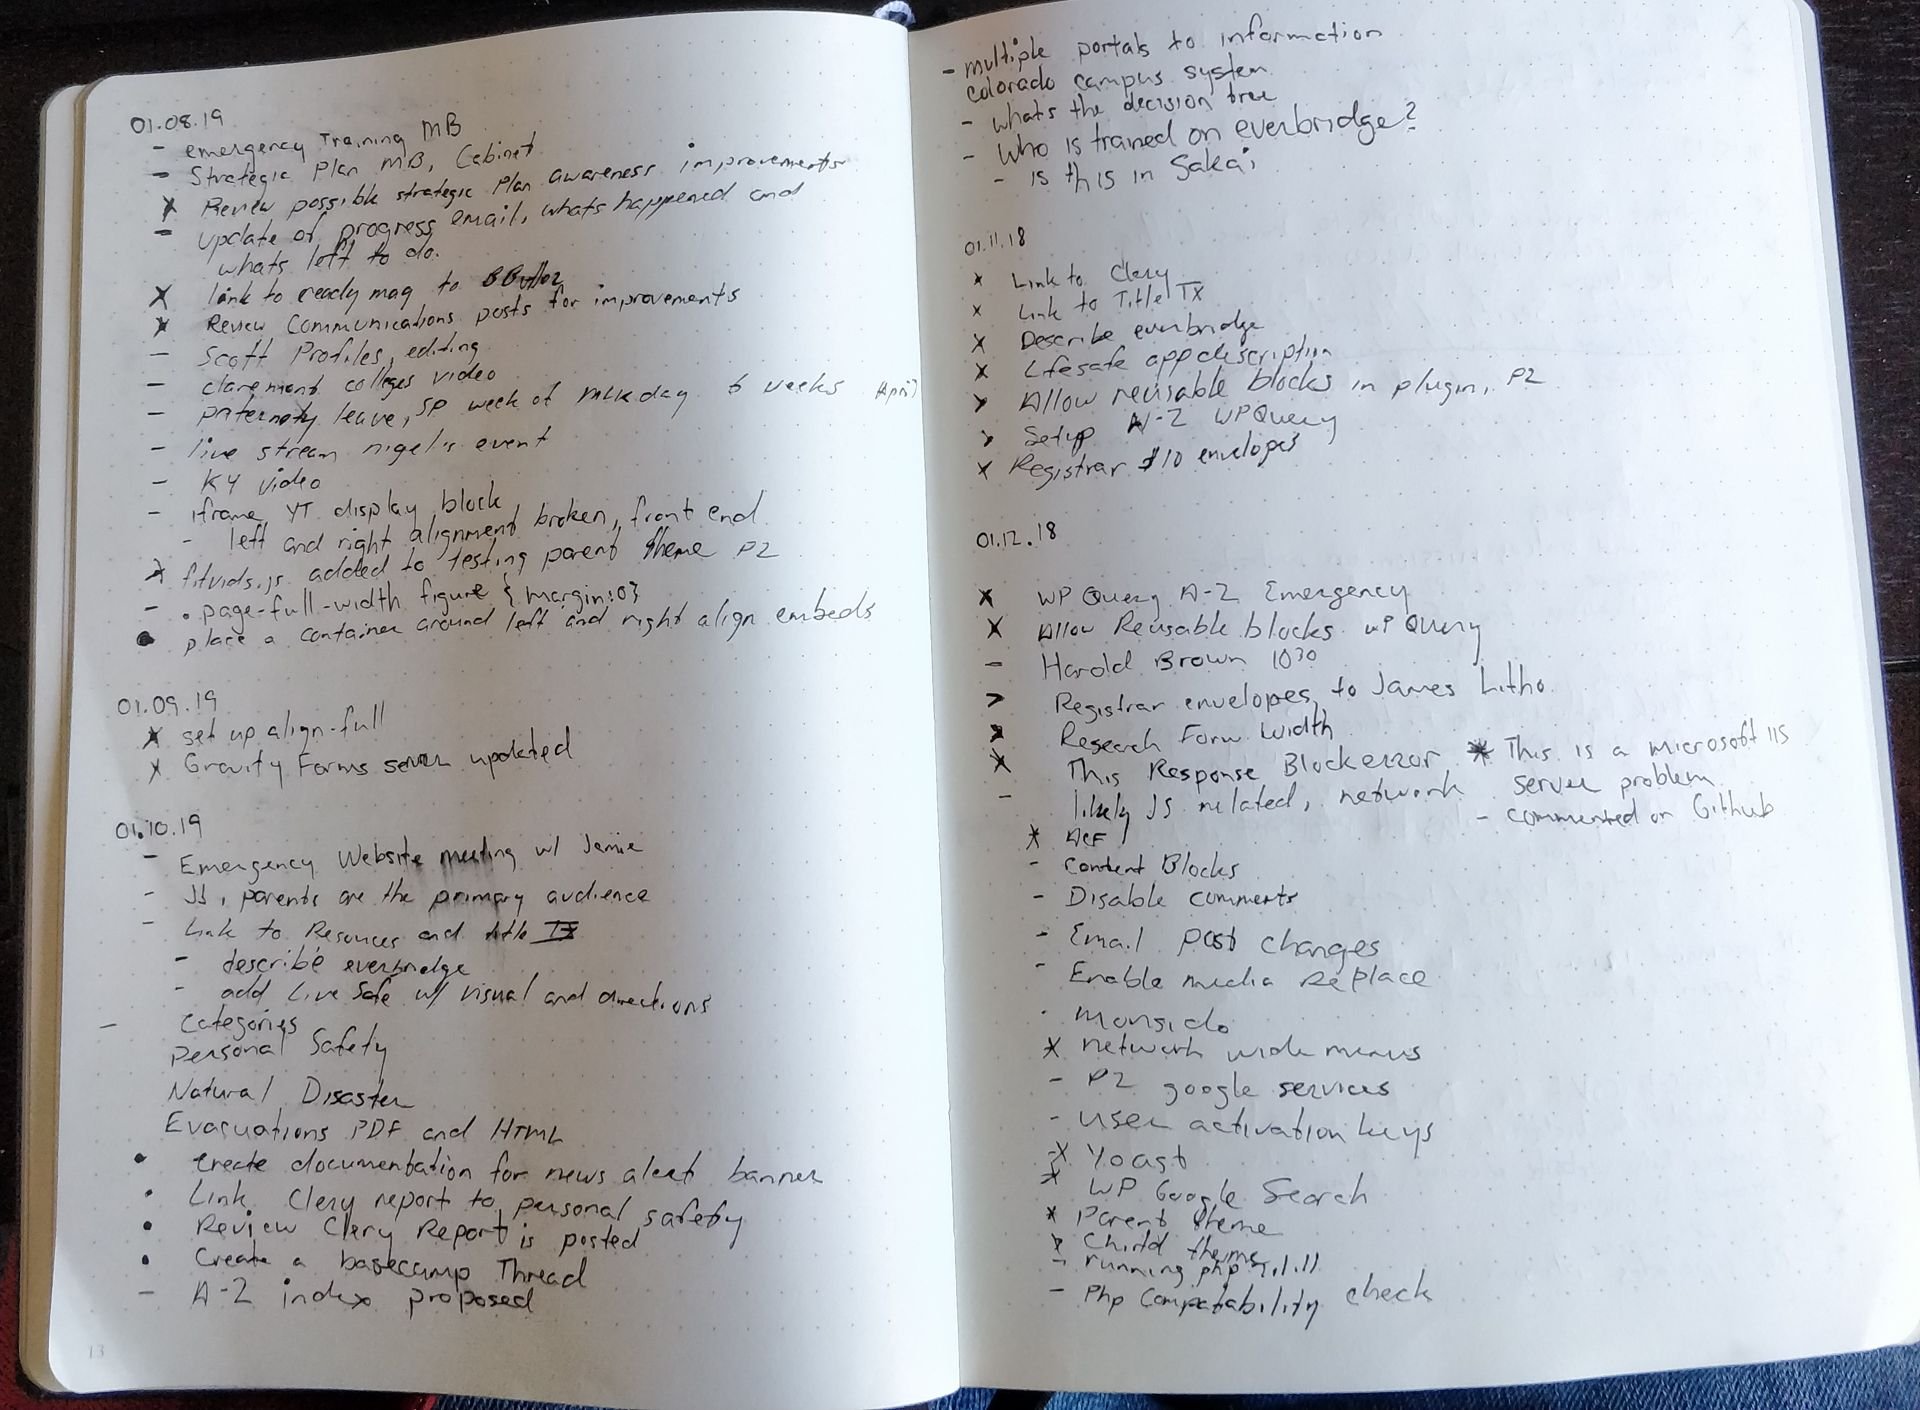 01.08.19
- emergency Training MB
- Strategic Plan MB, Cabinet
x Review possible strategic Plan awareness improvements
- update of progress email, whats happened and
whats left to do.
x link to ready mag to
x Review Communications posts for improvements
- Scott Profiles, editing
- claremont colleges video
- paternity leave, SP week of MLK day 6 weeks April
- live stream nigel's event
- K4 video
- iframe YT display block
- left and right alignment broken, front end
x fitvids.js added to testing parent theme P2
- .page-full-width figure {margin:0}
• place a container around left and right align embeds
01.09.19
x set up align-full
x Gravity Forms server updated
01.10.19
- Emergency Website meeting w/ Jamie
- JS, parents are the primary audience
- Link to Resources and title IX
- describe everbridge
- add Live Safe w/ visual and directions
- Categories
Personal Safety
Natural Disaster
Evacuations PDF and HTML
• create documentation for news alert banner
• Link Clery report to personal safety
• Review Clery Report is posted
• Create a basecamp Thread
- A-Z index proposed
13
- multiple portals to information
colorado campus system
- whats the decision tree
- who is trained on everbridge?
- is this in Sakai
01.11.18
x Link to Clery
x Link to Title IX
x Describe everbridge
x Lifesafe app description
> Allow reusable blocks in plugin, P2
> Setup A-Z WPQuery
x Registrar #10 envelopes
01.12.18
x WP Query A-Z Emergency
x Allow Reusable blocks WP Query
- Harold Brown 1030
> Registrar envelopes to James Litho
x Research Form Width
x This Response Block error * This is a microsoft IIS
- likely JS related, network server problem
- commented on Github
x ACF
- content Blocks
- Disable comments
- Email post changes
- Enable media Replace
· monsido
x network wide menus
- P2 google services
- user activation keys
x Yoast
x WP Google Search
x Parent theme
x Child theme
- running php 7.1.11
- Php Compatability check